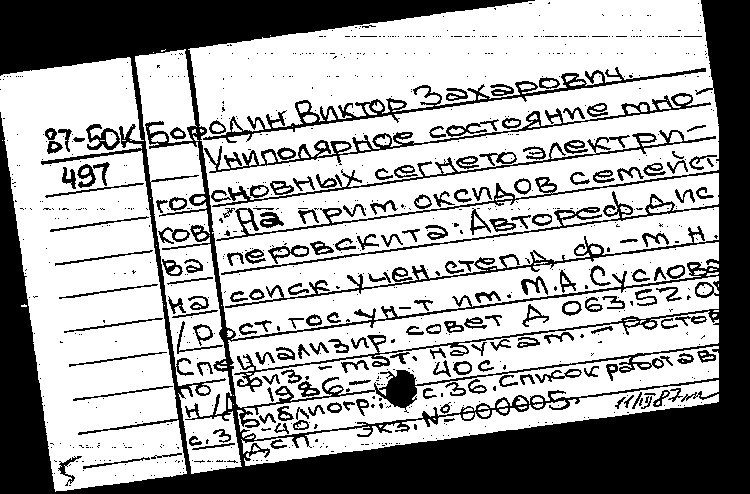 87-50К
497
Бородин, Виктор Захарович.
Униполярное состояние мно-
гоосновных сегнетоэлектри-
ков: На прим. оксидов семейст-
ва перовскита: Автореф. дис
на соиск. учен. степ. д. ф.-м. н.
/Рост. гос. ун-т им. М.А. Суслова
Специализир. совет Д 063.52.0
по физ.-мат. наукам.- Ростов
н/Д 1986.- 40с.
Библиогр.: с.36. Список работ авт
с.36-40.
Дсп. Экз. № 000005.
11/III 87
5